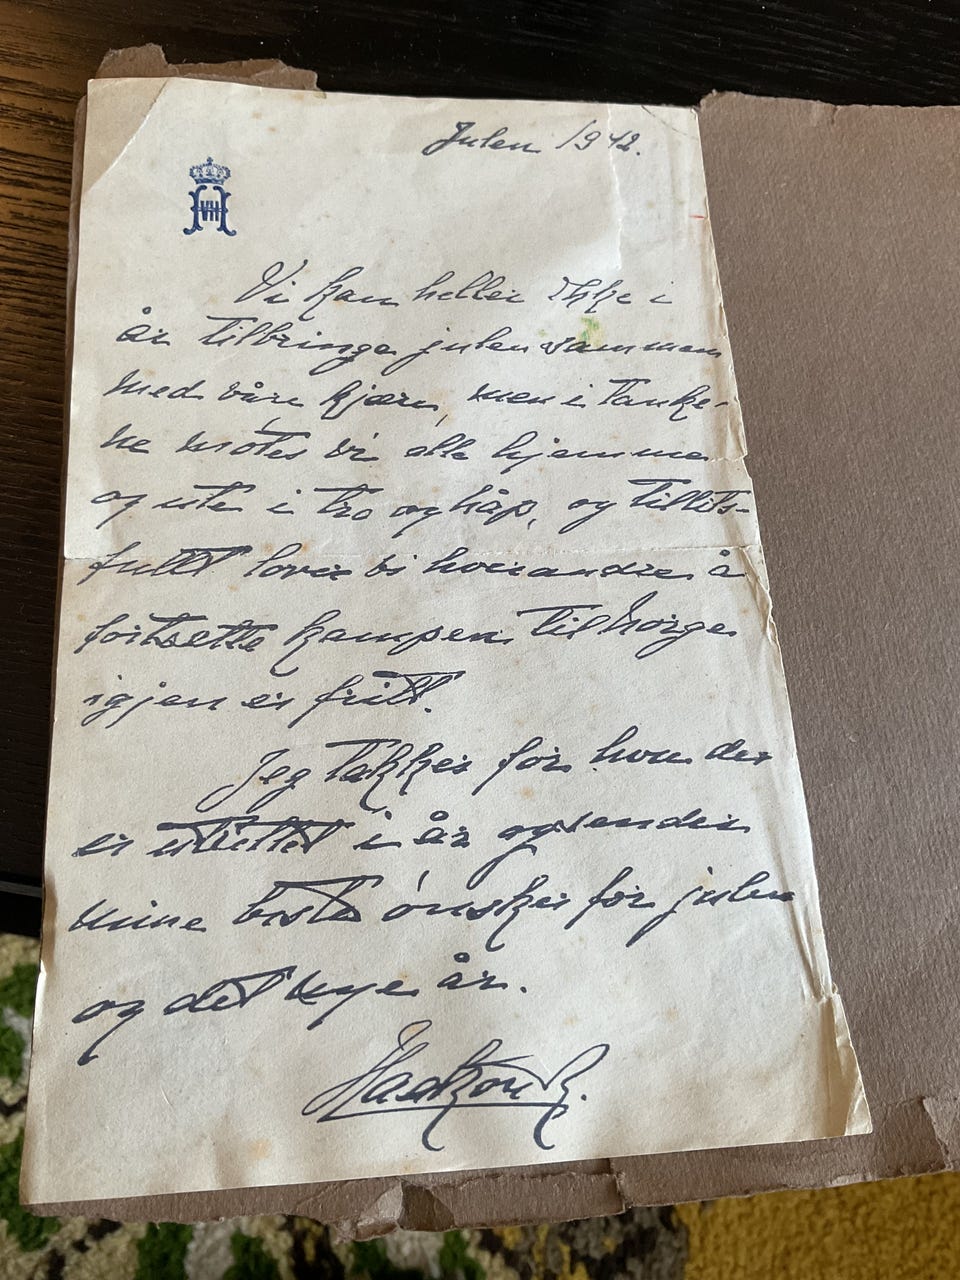 Julen 1942.
H VII
Vi kan heller ikke i
år tilbringe julen sammen
med våre kjære, men i tanke-
ne møtes vi alle hjemme
og ute i tro og håp, og tillits-
fullt lover vi hverandre å
fortsette kampen til Norge
igjen er fritt.
Jeg takker for hva der
er utrettet i år og sender
mine beste ønsker for julen
og det nye år.
Haakon R.